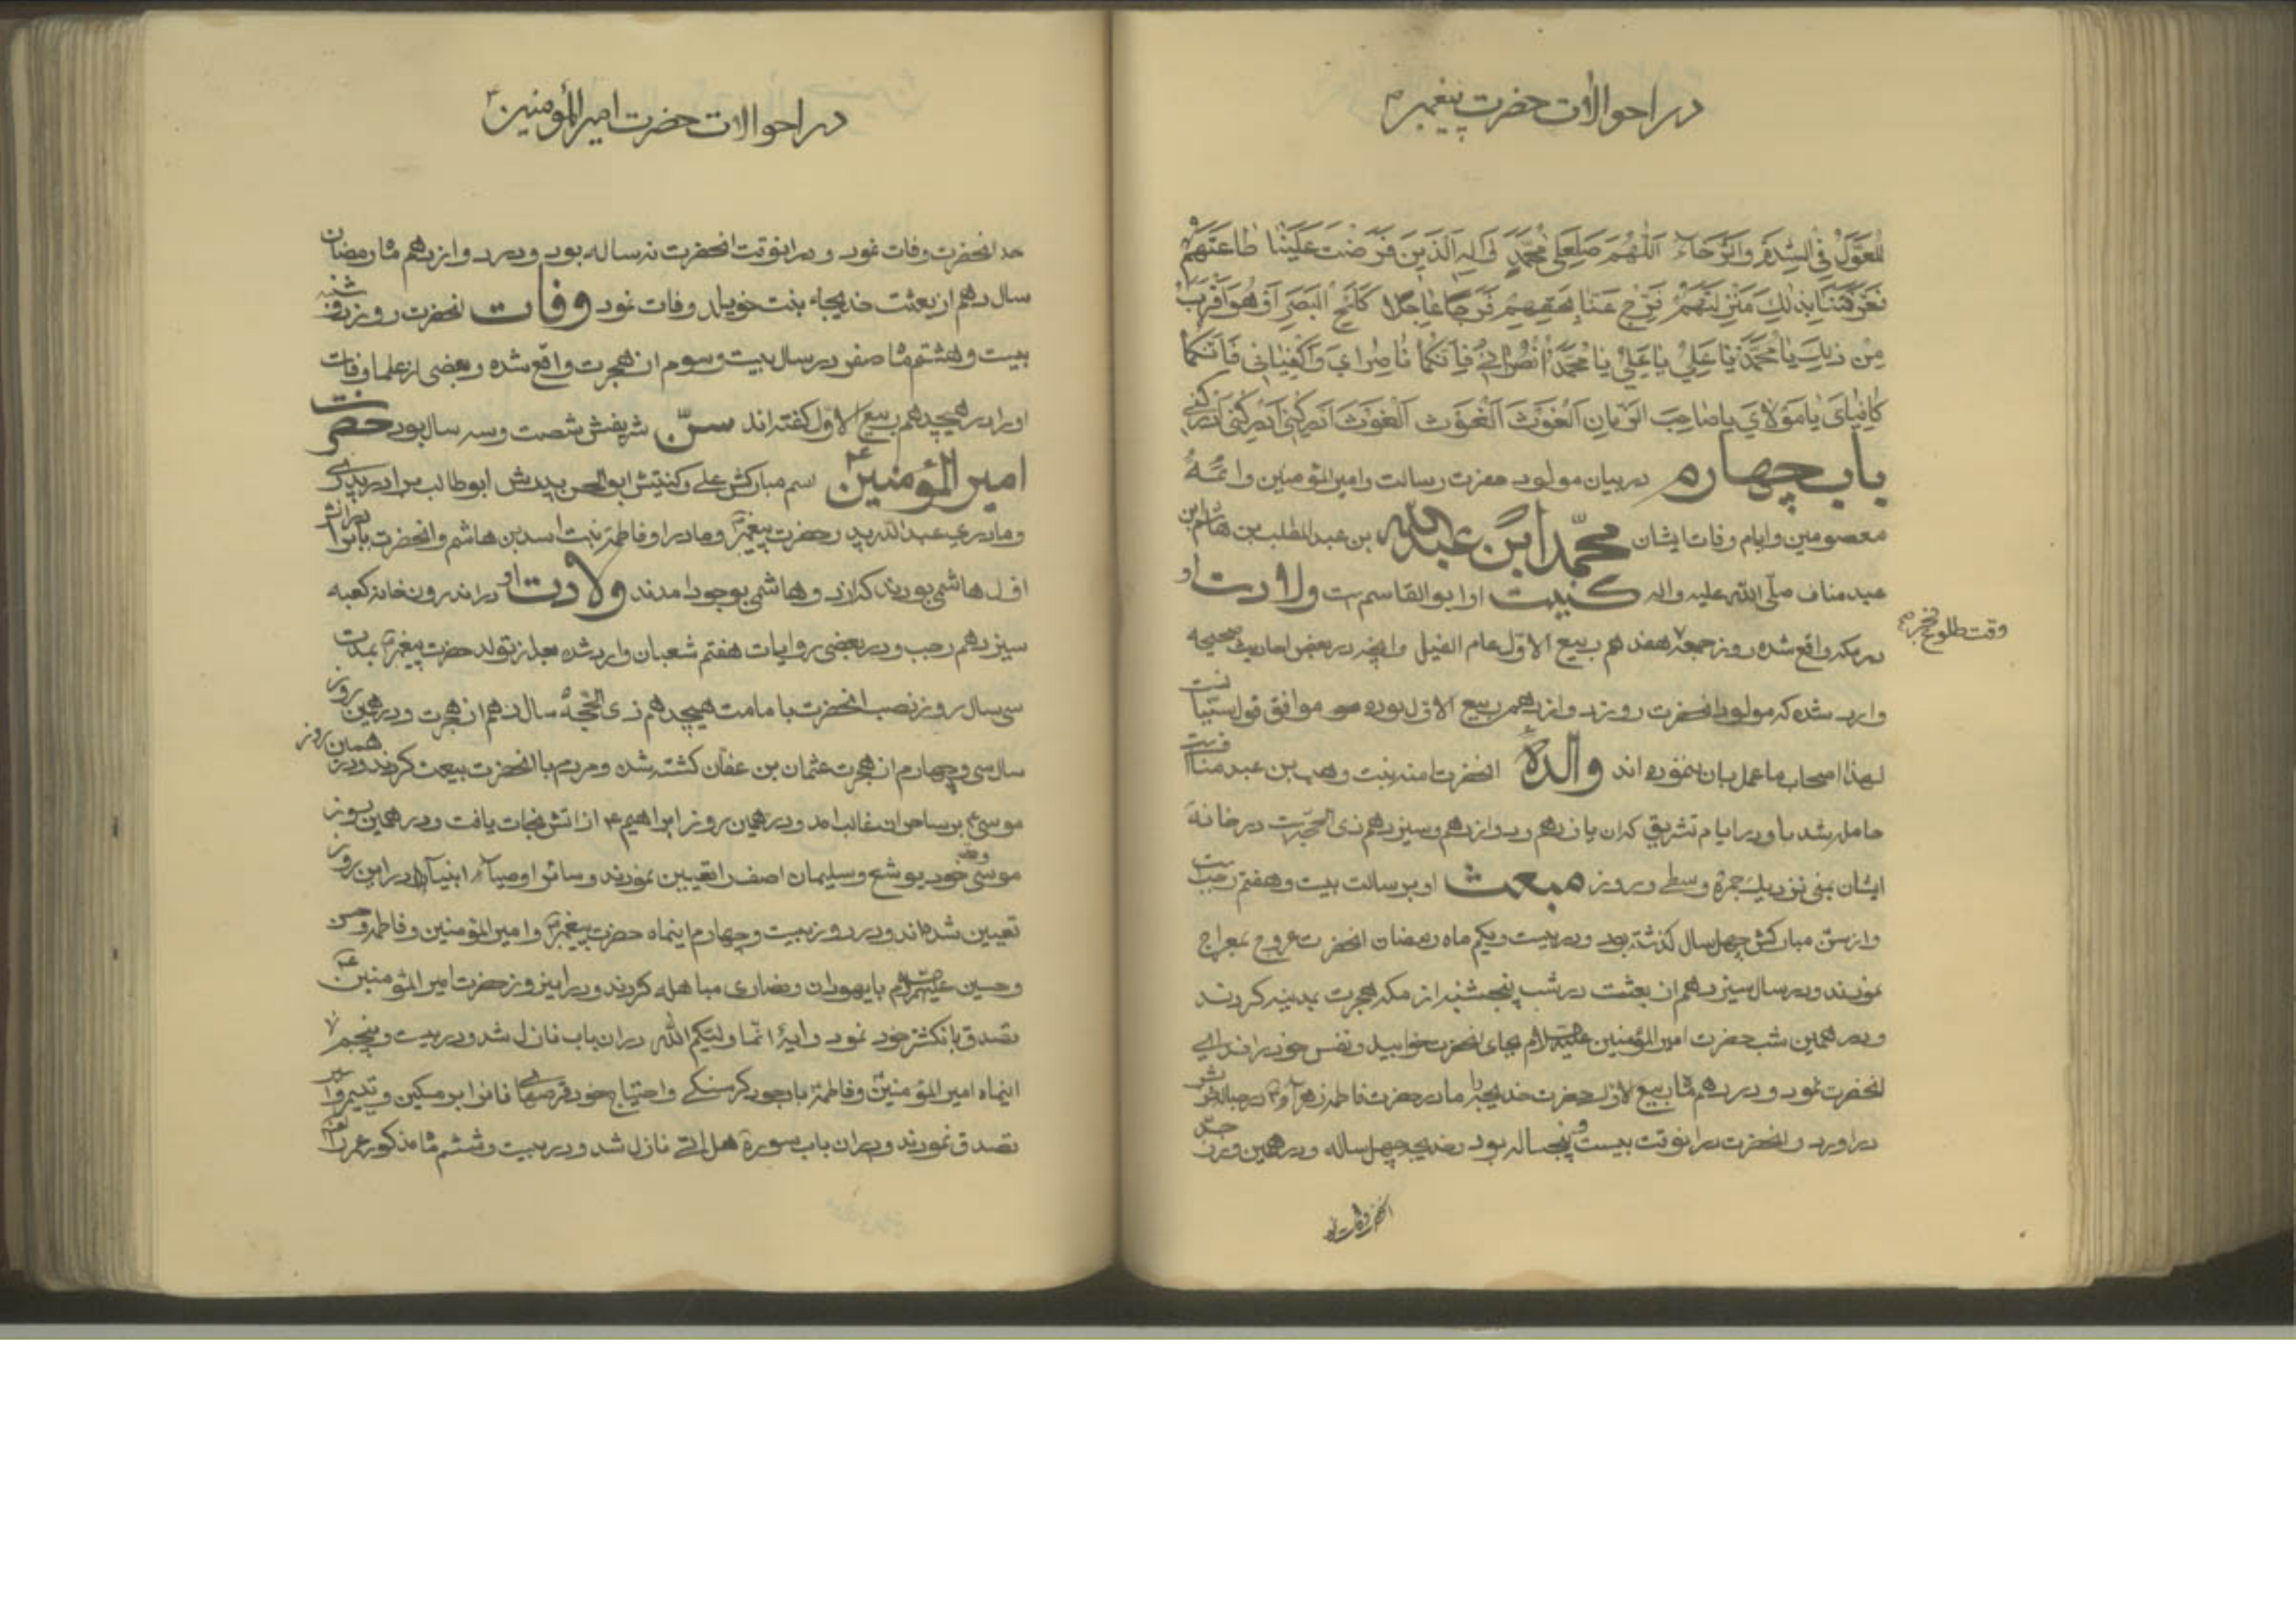 در احوالات حضرت پیغمبر ص
المُعَوَّلُ فِی الشِدَّةِ وَالرَّخَاءِ اَللّهُمَّ صَلِّ عَلی مُحَمَّدٍ وَ الِهِ الَّذینَ فَرَضْتَ عَلَیْنا طاعَتَهُمْ
فَعَرَّفْتَنا بِذلِكَ مَنْزِلَتَهُمْ فَرِّجْ عَنّا بِحَقِّهِمْ فَرَجًا عاجِلًا كَلَمْحِ الْبَصَرِ اَوْ هُوَ اَقْرَبُ
مِن ذلِكَ یا مُحَمَّدُ یا عَلِیُّ یا عَلِیُّ یا مُحَمَّدُ اُنْصُرانی فَاِنَّكُما ناصِرایَ وَاكْفِیانی فَاِنَّكُما
كافِیایَ یا مَوْلایَ یا صاحِبَ الزَّمانِ اَلْغَوْثَ اَلْغَوْثَ اَلْغَوْثَ اَدْرِكْنی اَدْرِكْنی اَدْرِكْنی
باب چهارم در بیان مولود حضرت رسالت و امیر المؤمنین و ائمهٔ
معصومین و ایام وفات ایشان محمّد ابن عبدالله بن عبد المطلب بن هاشم بن
عبد مناف صلّی الله علیه واله کنیت او ابو القاسم است ولادت او
در مکه واقع شده روز جمعه هفدهم ربیع الاوّل عام الفیل و ایضا در بعض احادیث صحیحه
وقت طلوع فجر
وارد شده که مولود انحضرت روز دوازدهم ربیع الاول بوده موافق قول سنّیانست
لهذا اصحاب ما عمل بان ننموده اند والدهٔ انحضرت امنه بنت وهب بن عبد منافست
حامله شد باو در ایام تشریق که ان یازدهم و دوازدهم و سیزدهم ذی الحجّه است در خانهٔ
ایشان بمنی نزدیك جمرهٔ وسطی و روز مبعث او برسالت بیست و هفتم رجبست
و از سنّ مبارکش چهل سال گذشته بود و در بیست و یکم ماه رمضان انحضرت عروج بمعراج
نمودند و در سال سیزدهم از بعثت در شب پنجشنبه از مکه هجرت بمدینه کردند
و در همین شب حضرت امیر المؤمنین علیه السلام بجای انحضرت خوابید و نفس خود را فدای
انحضرت نمود و در دهم ماه ربیع الاول حضرت خدیجه را مادر حضرت فاطمه زهرا
در اورد و انحضرت در انوقت بیست و پنجساله بود و خدیجه چهل ساله و در همین روز جدّ
انحضرت وفات نمود
در احوالات حضرت امیر المؤمنین ع
جد انحضرت وفات نمود و در انوقت انحضرت نه ساله بود و در دوازدهم ماه رمضان
سال دهم از بعثت خدیجه بنت خویلد وفات نمود وفات انحضرت روز دوشنبه
بیست و هشتم ماه صفر در سال بیست و سوم از هجرت واقع شده و بعضی از علما وفات
او را در هیجدهم ربیع الاوّل گفته اند سنّ شریفش شصت و سه سال بود حضرت
امیر المؤمنین ع اسم مبارکش علی و کنیتش ابوالحسن پدرش ابوطالب برادر پدری
و مادری عبدالله پدر حضرت پیغمبر و مادر او فاطمه بنت اسد بن هاشم و انحضرت با برادرانش
اول هاشمی بودند که از دو هاشمی بوجود امدند ولادت او در اندرون خانه کعبه
سیزدهم رجب و در بعضی روایات هفتم شعبان وارد شده بعد از تولد حضرت پیغمبر بمدت
سی سال روز نصب انحضرت بامامت هیجدهم ذی الحجّه سال دهم از هجرت و در همین روز
سال سی و چهارم از هجرت عثمان بن عفان کشته شده و مردم با انحضرت بیعت کردند و در همان روز
موسی ع بر ساحران غالب امد و در همان روز ابراهیم ع از اتش نجات یافت و در همین روز
موسی وصی خود یوشع و سلیمان اصف را تعیین نمودند و سائر اوصیاء انبیا در این روز
تعیین شده اند و در روز بیست و چهارم اینماه حضرت پیغمبر و امیر المؤمنین و فاطمه و حسن
و حسین علیهم السلام با یهودان و نصاری مباهله کردند و در این روز حضرت امیر المؤمنین ع
تصدق بانگشتر خود نمود و ایهٔ انّما ولیّکم الله در ان باب نازل شد و در بیست و پنجم
اینماه امیر المؤمنین و فاطمه با وجود گرسنگی و احتیاج خود قرصهای نانرا بر مسکین و یتیم و اسیر
تصدق نمودند و در ان باب سورهٔ هل اتی نازل شد و در بیست و ششم ماه مذکور عمر را